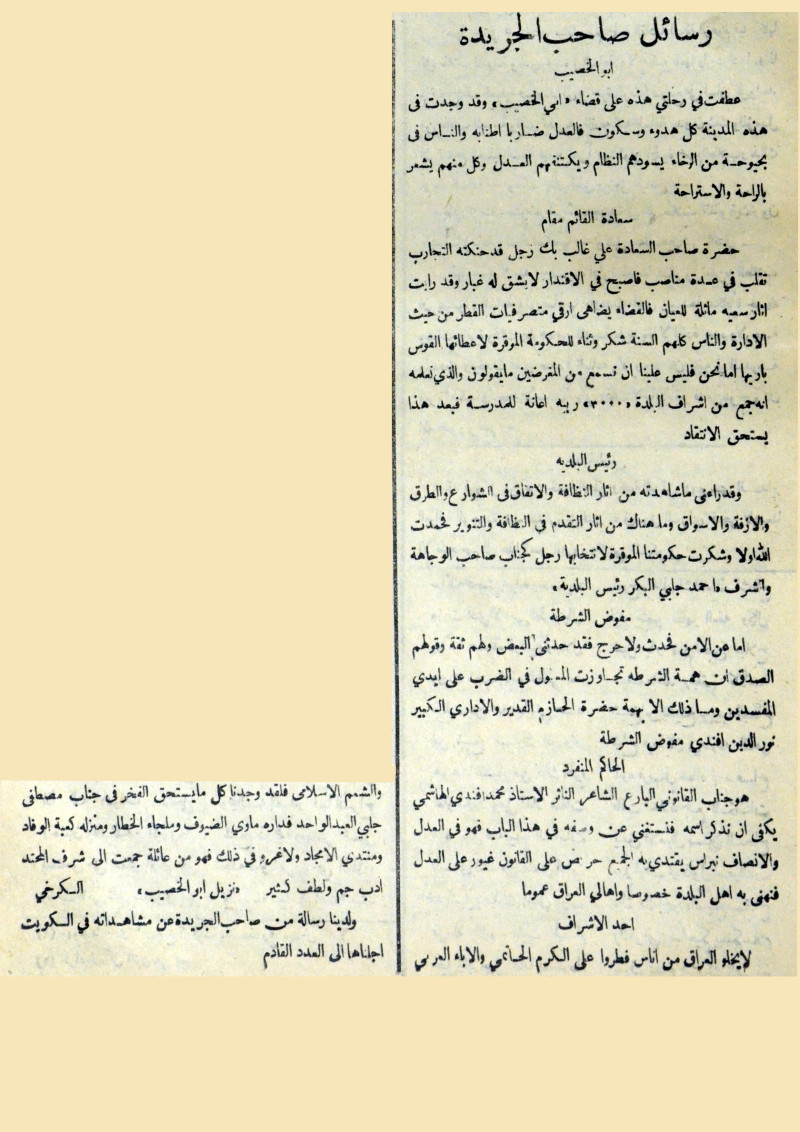 رسائل صاحب الجريدة
ابو الخصيب
عطفت في رحلتي هذه على قضاء «ابي الخصيب» وقد وجدت فى
هذه المدينة كل هدوء وسكون فالعدل ضاربا اطنابه والناس فى
بحبوحة من الرخاء يسودهم النظام ويكتنفهم العدل وكل منهم يشعر
بالراحة والاستراحة
سعادة القائم مقام
حضرة صاحب السعادة علي غالب بك رجل قد حنكته التجارب
تقلب في عدة مناصب فاصبح في الاقتدار لايشق له غبار وقد رايت
اثار سعيه ماثلة للعيان فالقضاء يضاهى ارقي متصرفيات القطر من حيث
الادارة والناس كلهم السنة شكر وثناء للحكومة الموقرة لاعطائها القوس
باريها اما نحن فليس علينا ان نسمع من المغرضين مايقولون والذي نعلمه
انه جمع من اشراف البلدة «٣٠٠٠» ربيه اعانة للمدرسة فبعد هذا
يستحق الانتقاد
رئيس البلديه
وقد راعنى ماشاهدته من اثار النظافة والاتفاق فى الشوارع والطرق
والازقة والاسواق وما هناك من اثار التقدم في النظافة والتنوير فحمدت
الله اولا وشكرت حكومتنا الموقرة لانتخابها رجل كجناب صاحب الوجاهة
والشرف «احمد جلبي البكر رئيس البلدية»
مفوض الشرطة
اما عن الامن فحدث ولا حرج فقد حدثنى البعض ولهم ثقة وقولهم
الصدق ان همة الشرطه تجاوزت المعقول في الضرب على ايدي
المفسدين وما ذلك الا بهمة حضرة الحازم القدير والاداري الكبير
نور الدين افندي مفوض الشرطة
الحاكم المنفرد
هو جناب القانوني البارع الشاعر الناثر الاستاذ محمد افندي الهاشمي
يكفى ان نذكر اسمه فنستغني عن وصفه في هذا الباب فهو في العدل
والانصاف نبراس يقتدي به الجميع حريص على القانون غيور على العدل
فنهنى به اهل البلدة خصوصا واهالي العراق عموما
احد الاشراف
لايخلو العراق من اناس فطروا على الكرم الحاتمي والاباء العربي
والشمم الاسلامى فلقد وجدنا كل مايستحق الفخر فى جناب مصطفى
جلبي العبد الواحد فداره ماوي الضيوف وملجاء الخطار ومنزله كعبة الوفاد
ومنتدي الامجاد ولاغرو في ذلك فهو من عائلة جمعت الى شرف المحتد
ادب جم ولطف كثير «نزيل ابو الخصيب» الكرخي
ولدينا رسالة من صاحب الجريدة عن مشاهداته في الكويت
اجلناها الى العدد القادم